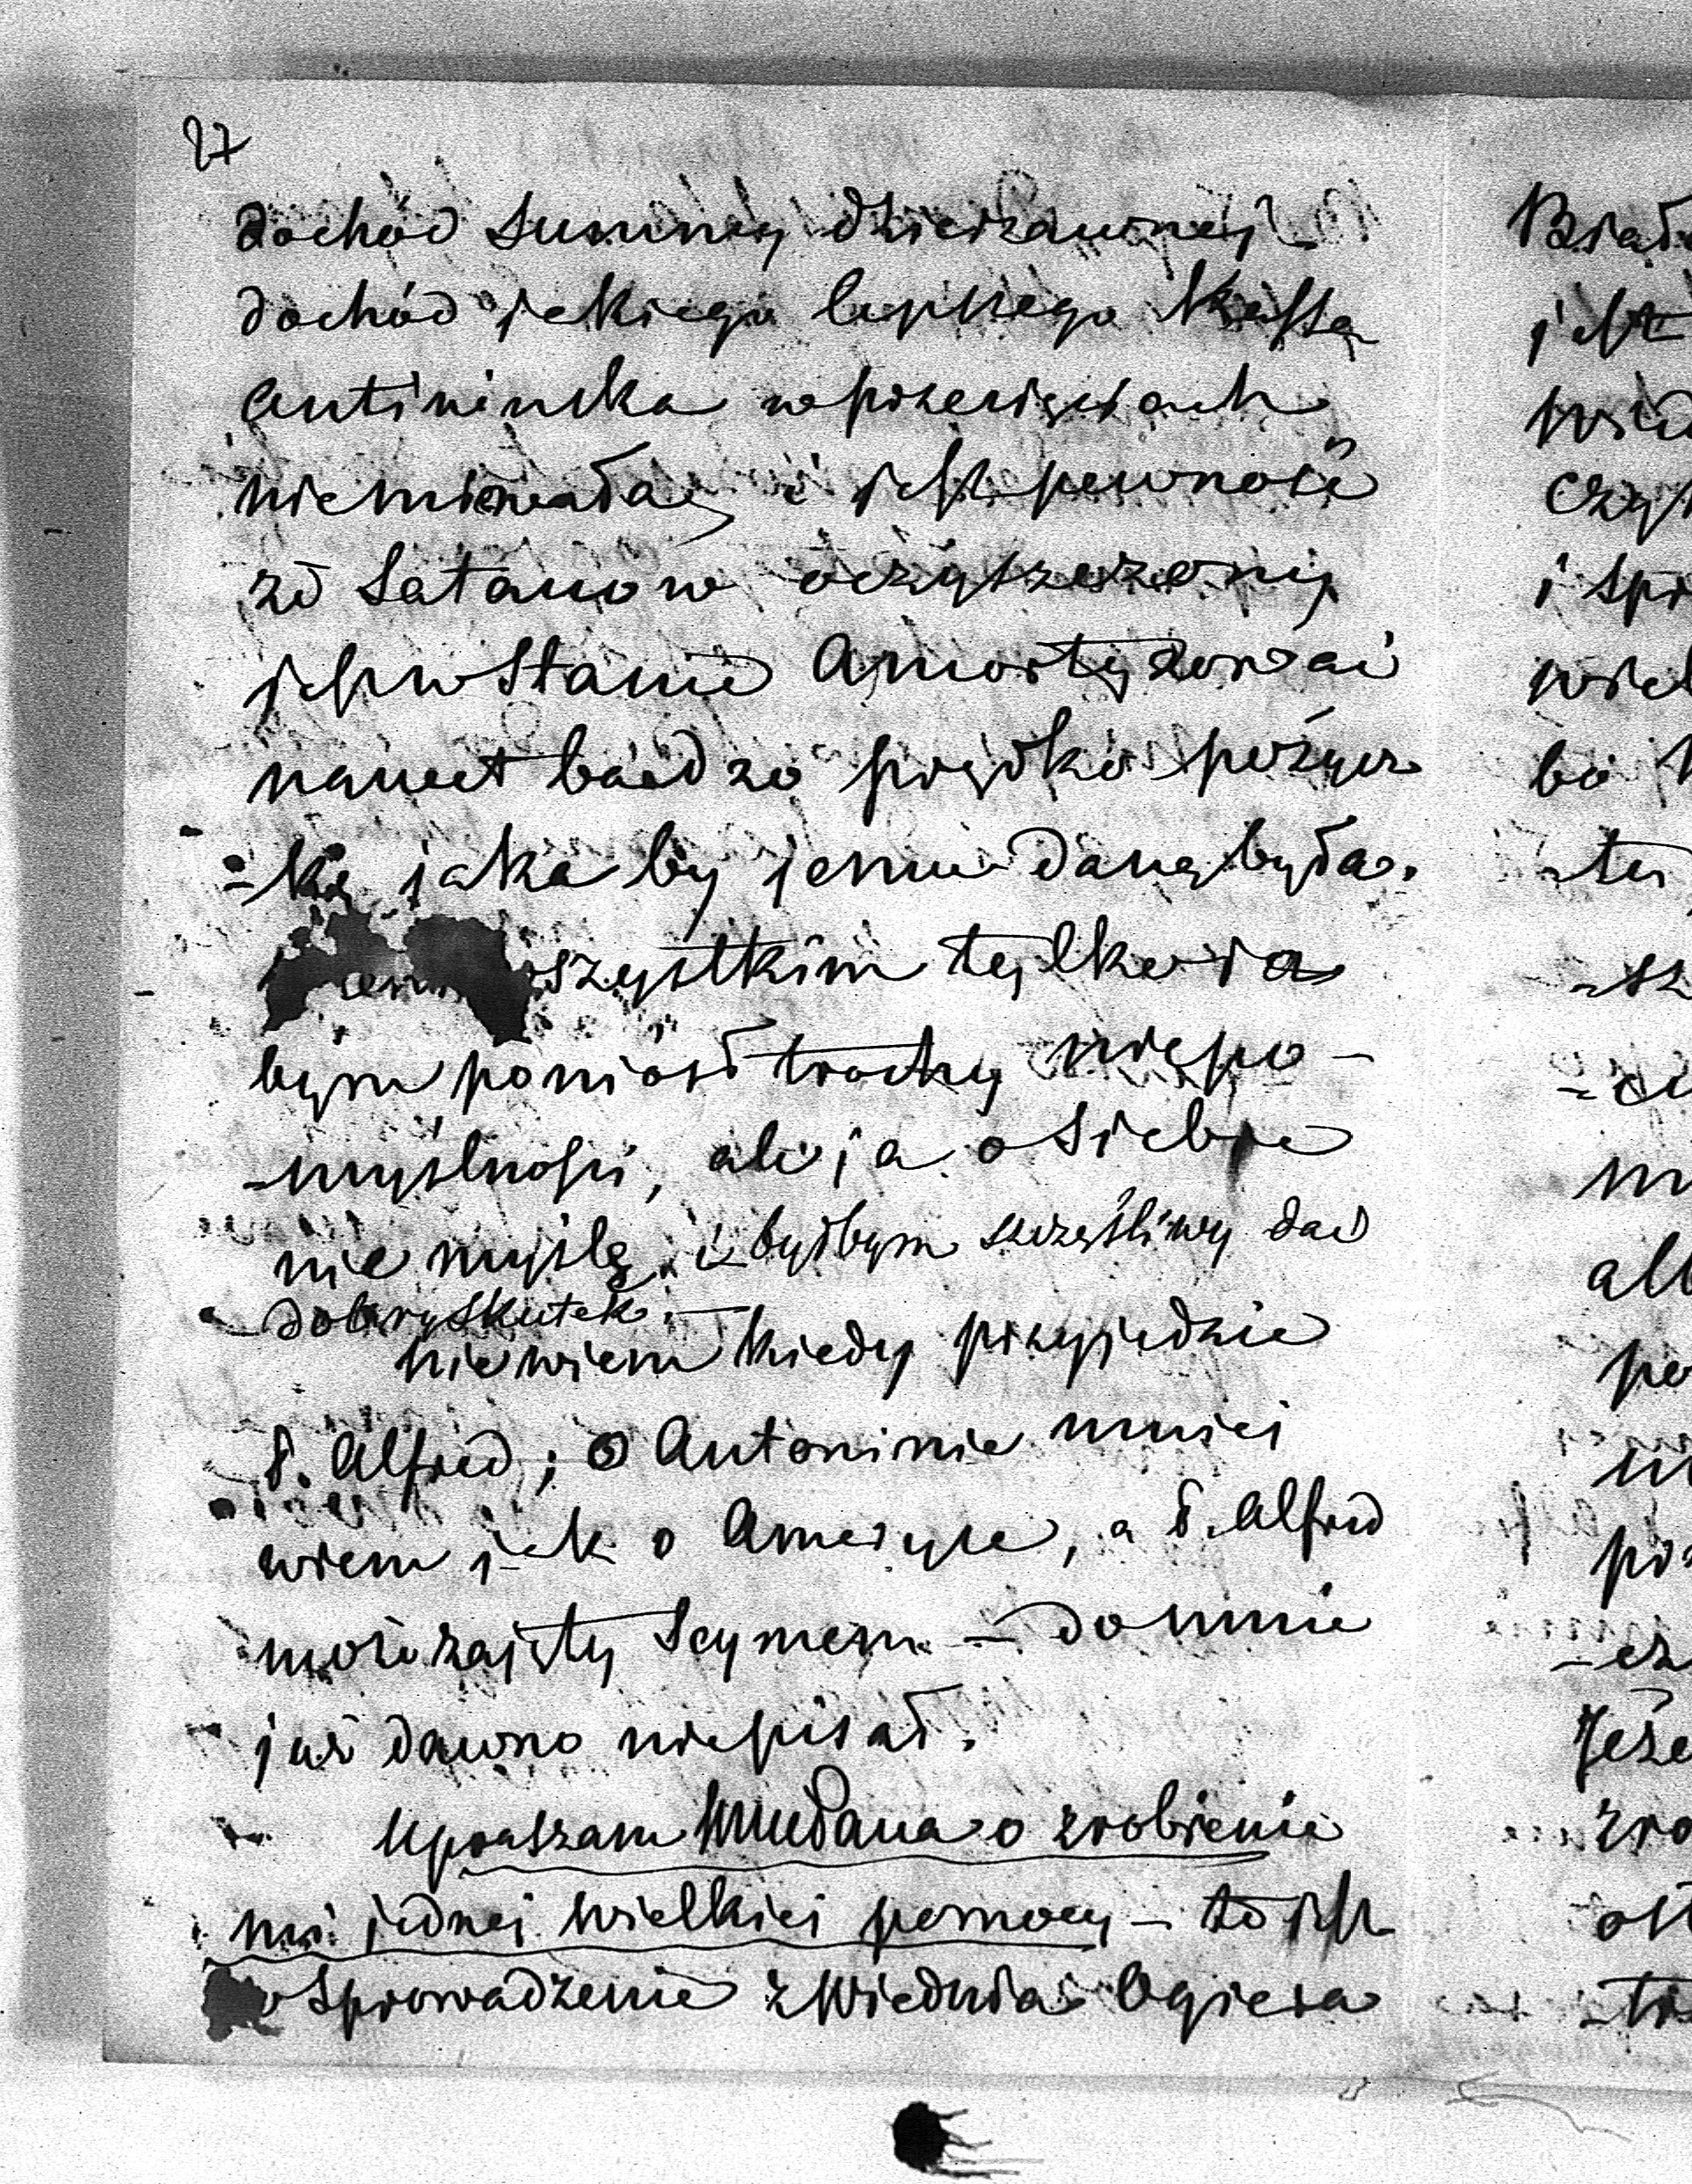 27
dochód Summy dzierzawnej
dochód jakiego lepszego Kassa
Antinińska w przecięciach
niemiewała, i jest pewność
że Satanów oczyszczony
jest w Stanie Amortyzować
nawet bardzo prędko pożycz
=kę jaka by jemu daną była.
szystkim tylko ja
bym poniósł trochy niepo-
-myślności, ale ja o Siebie
nie myślę, i byłbym szczęśliwy dać
dobry Skutek. —
nie wiem kiedy przyjedzie
P. Alfred; o Antoninie mniej
wiem jak o Ameryce, a P. Alfred
może zajęty Seymem — do mnie
już dawno niepisał.
Upraszam Pana o zrobienie
mi jednej wielkiej pomocy — to jest
o Sprowadzenie z Wiednia Ogiera
Biał
jest
wid
czy
i spr
wiel
bo
-te
-sz
-ci
m
alb
po
prz
-cz
Jeże
zro
ost
-tr